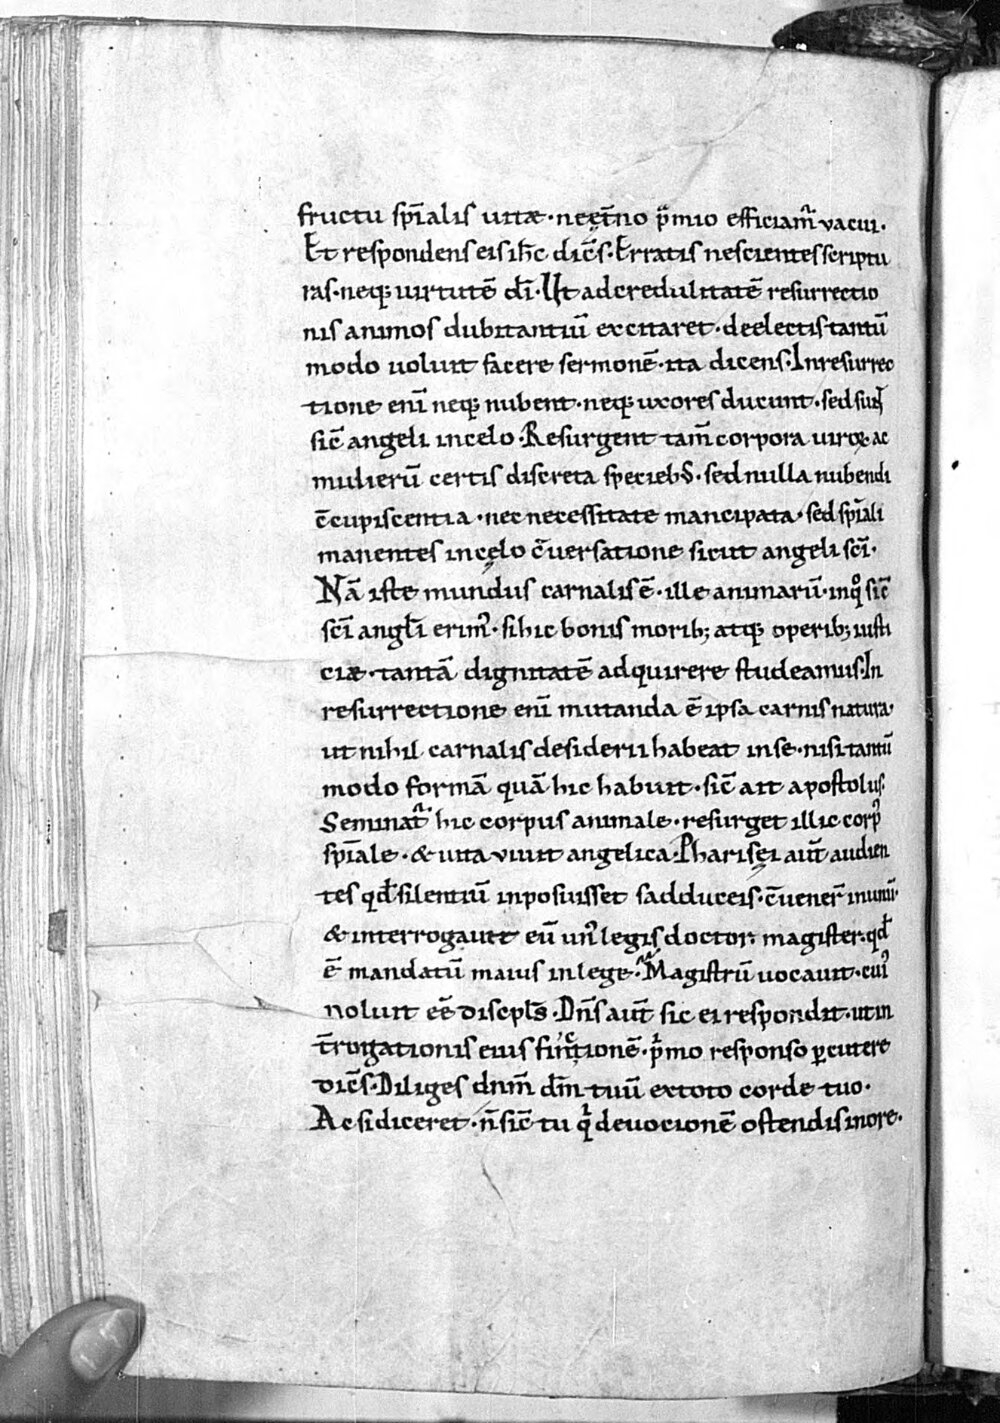 fructu spīalis uitæ · ne ęt̄no p̄mio efficiam̄ vacui.
Et respondens eis ih̄c dic̄s · Erratis nescientes scriptu
ras · neq; uirtutē dī · Ut ad credulitatē resurrectio
nis animos dubitantiū excitaret · de electis tantū
modo uoluit facere sermonē · ita dicens · In resurrec
tione enī neq; nubent · neq; uxores ducunt · sed sunt
sic̄ angeli in celo · Resurgent tam̄ corpora uiroꝝ ac
mulierū certis discreta specieb; · sed nulla nubendi
c̄cupiscentia · nec necessitate mancipata · sed spīali
manentes in cęlo c̄uersatione sicut angeli sc̄i ·
Nā iste mundus carnalis ē · ille animarū · in qͦ sic̄
sc̄i angli erim᷒ · si hic bonis morib; atq; operib; iusti
ciæ · tantā dignitatē adquirere studeamus · In
resurrectione enī mutanda ē ipsa carnis natura ·
ut nihil carnalis desiderii habeat in se · nisi tantū
modo formā quā hic habuit · sic̄ ait apostolus ·
Seminat᷑ hic corpus animale · resurget illic corp᷒
spīale · & uita viuit angelica · Pharisęi aut̄ audien
tes qđ silentiū inposuisset sadduceis · c̄uener̄ in unū ·
& interrogauit eū un᷒ legis doctor · magister · qđ
ē mandatū maius in lege · Magistrū uocauit · cui᷒
noluit eē discipl̄s · Dn̄s aut̄ sic ei respondit · ut in
t̄rogationis eius finctionē · pͥmo responso ꝑcutere
dic̄s · Diliges dnm̄ dm̄ tuū ex toto corde tuo ·
Ac si diceret · n̄ sic̄ tu qͥ deuocionē ostendis in ore ·